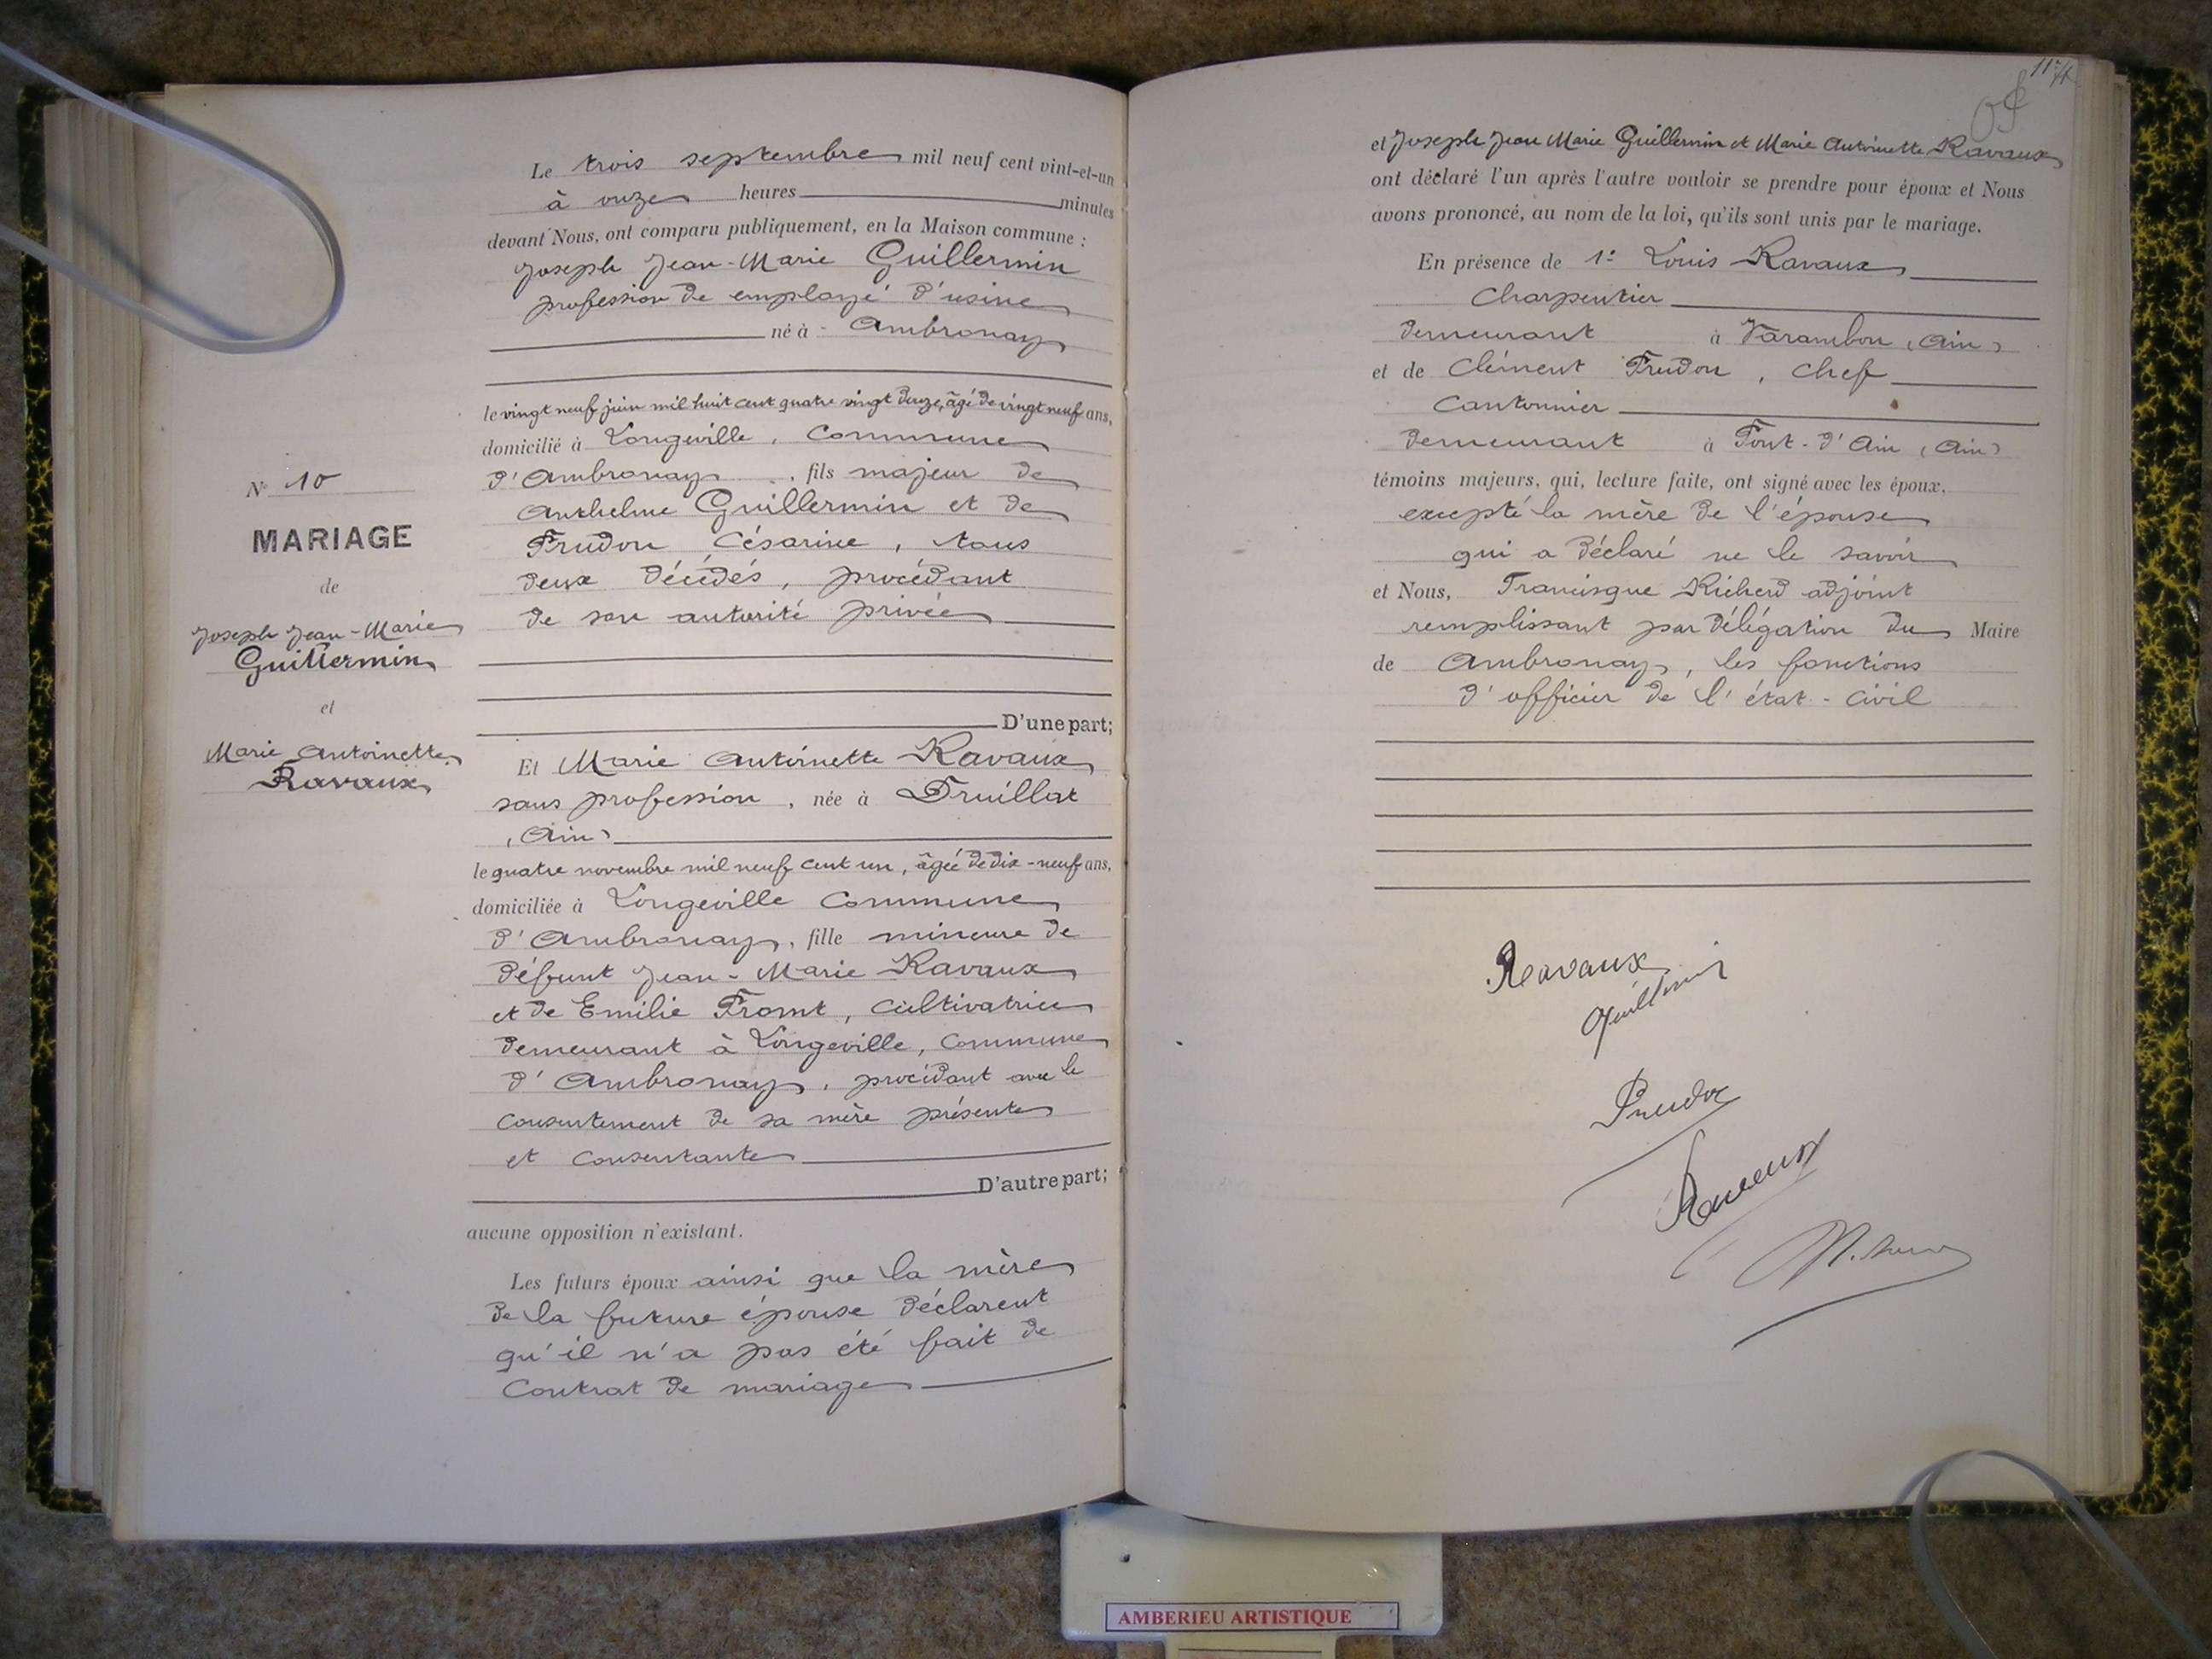 Le trois septembre mil neuf cent vint-et-un
à onze heures minutes
devant Nous, ont comparu publiquement, en la Maison commune :
Joseph Jean-Marie Guillermin
profession de employé d'usine
né à Ambronay
le vingt neuf juin mil huit cent quatre vingt douze, âgé de vingt neuf ans,
domicilié à Longeville, Commune
d'Ambronay, fils majeur de
Anthelme Guillermin et de
Prudon Césarine, tous
deux décédés, procédant
de son autorité privée
D'une part;
Et Marie Antoinette Ravaux
sans profession, née à Druillat
(Ain)
le quatre novembre mil neuf cent un, âgée de dix-neuf ans,
domiciliée à Longeville Commune
d'Ambronay, fille mineure de
défunt Jean-Marie Ravaux
et de Emilie Promt, cultivatrice
demeurant à Longeville, Commune
d'Ambronay, procédant avec le
consentement de sa mère présente
et consentante
D'autre part;
aucune opposition n'existant.
Les futurs époux ainsi que la mère
de la future épouse déclarent
qu'il n'a pas été fait de
Contrat de mariage
No 10
MARIAGE
de
Joseph Jean-Marie
Guillermin
et
Marie Antoinette
Ravaux
et Joseph Jean Marie Guillermin et Marie Antoinette Ravaux
ont déclaré l'un après l'autre vouloir se prendre pour époux et Nous
avons prononcé, au nom de la loi, qu'ils sont unis par le mariage.
En présence de 1º Louis Ravaux
Charpentier
demeurant à Varambon (Ain)
et de Clément Prudon, Chef
Cantonnier
demeurant à Pont-d'Ain (Ain)
témoins majeurs, qui, lecture faite, ont signé avec les époux,
excepté la mère de l'épouse
qui a déclaré ne le savoir
et Nous, Francisque Richerd adjoint
remplissant par délégation du Maire
de Ambronay, les fonctions
d'officier de l'état-civil
Ravaux
Guillermin
Prudon
Ravaux
AMBERIEU ARTISTIQUE